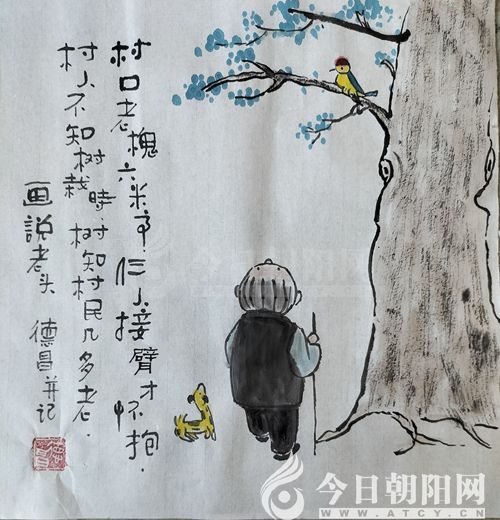 村口老槐六米高.仨人接臂才怀抱.
村人不知树栽時.树知村民几多老.
画説老头 德昌并记
今日朝阳网
WWW.ATCY.CN